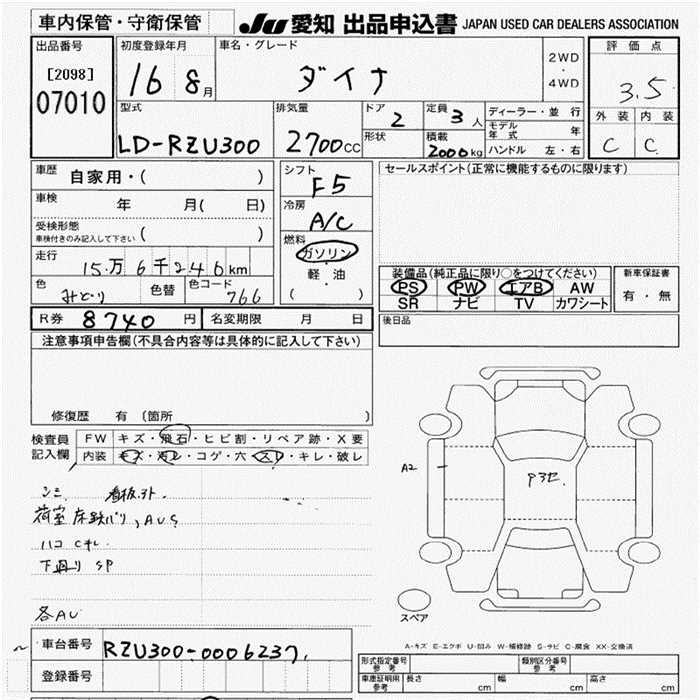 車内保管・守衛保管
JU 愛知 出品申込書 JAPAN USED CAR DEALERS ASSOCIATION
出品番号
[2098]
07010
初度登録年月
16 8月
車名・グレード
ダイナ
2WD
・
4WD
評価点
3.5
外装 内装
C C
型式
LD-RZU300
排気量
2700cc
ドア
2
形状
定員
3人
積載
2000kg
ディーラー・並行
モデル年式 年
ハンドル 左・右
車歴
自家用・( )
車検
年 月( 日)
受検形態
車検付きのみ記入して下さい ( )
走行
15万6千246km
色
みどり
色替
色コード
766
シフト
F5
冷房
A/C
燃料
ガソリン
・
軽・油
( )
セールスポイント(正常に機能するものに限ります)
装備品(純正品に限り○をつけてください)
PS PW エアB AW
SR ナビ TV カワシート
新車保証書
有・無
R券 8740円
名変期限 月 日
後日品
注意事項申告欄(不具合内容等は具体的に記入して下さい)
修復歴 有 (箇所 )
検査員記入欄
FW キズ・飛石・ヒビ割・リペア跡・X要
内装 キズ・汚レ・コゲ・穴・スレ・キレ・破レ
シミ 看板アト
荷室 床鉄バリ、AUS
ハコ Cキレ
下廻り SP
各AU
A2
P3セ.
スペア
A-キズ E-エクボ U-凹み W-補修跡 S-サビ C-腐食 XX-交換済
車台番号
RZU300-0006237
登録番号
型式指定番号 参考
類別区分番号 参考
車庫証明用 参考
長さ cm
幅 cm
高さ cm